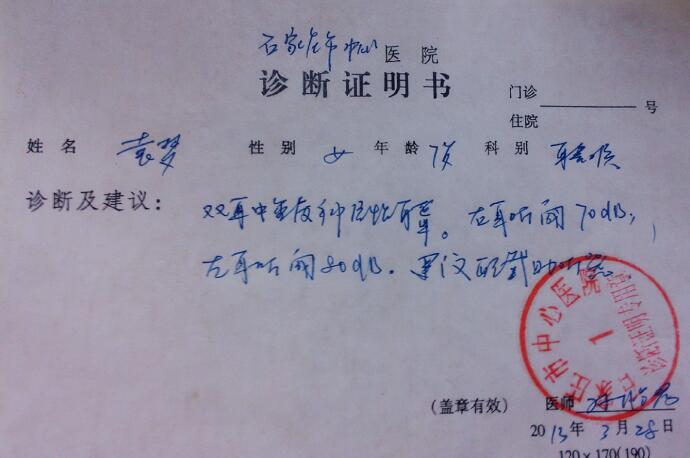 石家庄市中心医院
诊断证明书
门诊
住院 号
姓名 袁梦 性别 女 年龄 7岁 科别 耳鼻喉
诊断及建议： 双耳中重度神经性耳聋。右耳听阈70dB，
左耳听阈80dB。建议配戴助听器。
石家庄市中心医院
1
诊断证明专用章
（盖章有效） 医师
2013年3月28日
120×170(190)